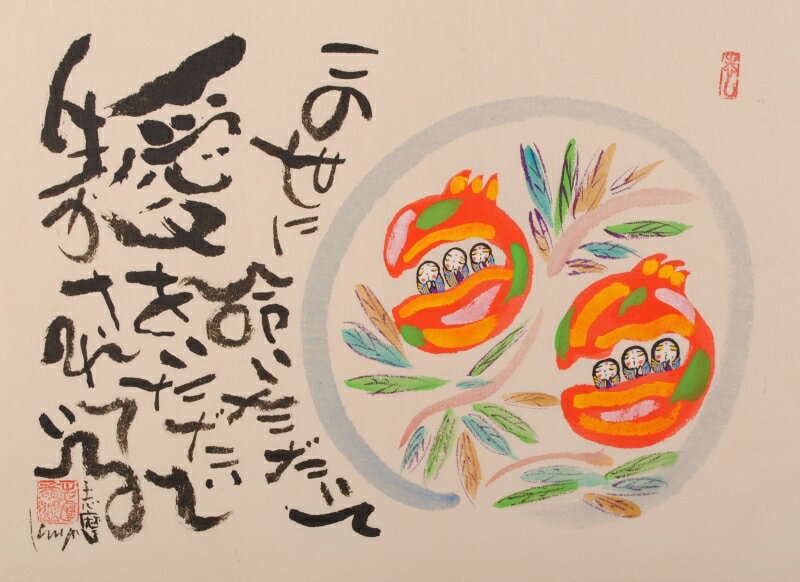 この
世に
命いただいて
愛をいただいて
生かされている